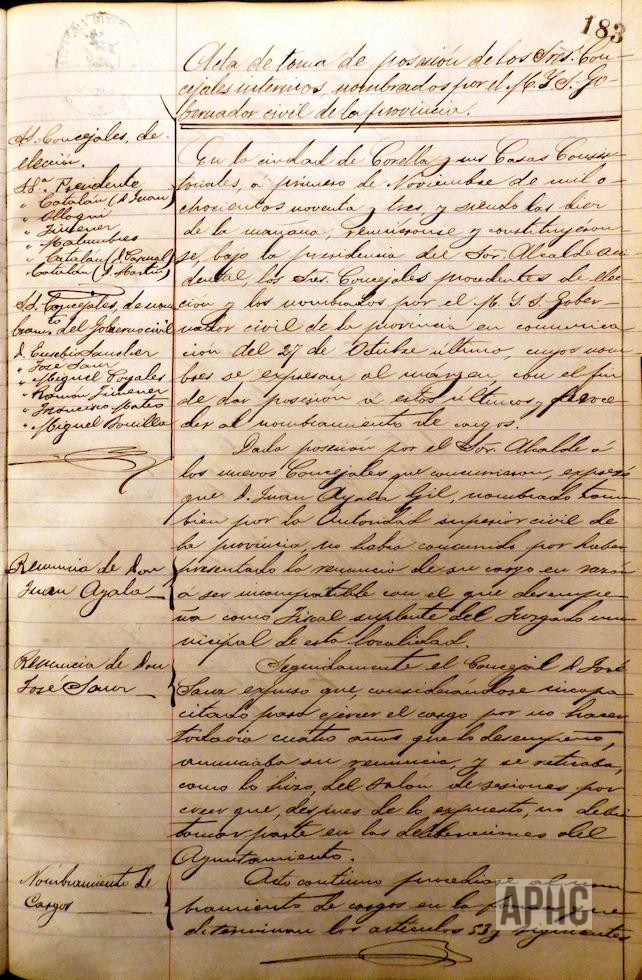 183
Acta de toma de posesión de los Sres. Con-
cejales interinos, nombrados por el M. Y. S. Go-
bernador civil de la provincia.
SS. Concejales, de
elección.
Presidente
" Catalán (D. Juan)
" Jimenez
" Catalán (D. Pascual)
" Catalán (D. Martín)
SS. Concejales, de nom
bramto. del Gobernador civil
D. Eusebio Sanchez
" José Sanz
" Miguel Poyales
" Ramon Jimenez
" Francisco Mateo
" Miguel Bonilla
En la ciudad de Corella y sus Casas Consis-
toriales, a primero de Noviembre de mil o-
chocientos noventa y tres, y siendo las diez
de la mañana, reuniéronse y constituyeron-
se, bajo la presidencia del Sor. Alcalde acci-
dental, los Sres. Concejales procedentes de elec-
ción y los nombrados por el M. Y. S. Gober-
nador civil de la provincia en comunica-
ción del 27 de Octubre último, cuyos nom-
bres se expresan al margen con el fin
de dar posesión á estos últimos y proce-
der al nombramiento de cargos.
Dada posesión por el Sor. Alcalde á
los nuevos Concejales que concurrieron, expresó
que D. Juan Ayala Gil, nombrado tam-
bien por la Autoridad superior civil de
la provincia, no habia concurrido por haber
presentado la renuncia de su cargo en razón
a ser incompatible con el que desempe-
ña como Fiscal suplente del Juzgado mu-
nicipal de esta localidad.
Renuncia de Don
Juan Ayala
Seguidamente el Concejal D. José
Sanz expuso que, considerándose incapa-
citado para ejercer el cargo por no hacer
todavia cuatro años que lo desempeñó,
anunciaba su renuncia, y se retiraba,
como lo hizo, del salón de sesiones por
creer que, despues de lo expuesto, no debía
tomar parte en las deliberaciones del
Ayuntamiento.
Renuncia de Don
José Sanz
Acto continuo procediose al nom-
bramiento de cargos en la forma que
determinan los artículos 53 y siguientes
Nombramiento de
Cargos
APHC